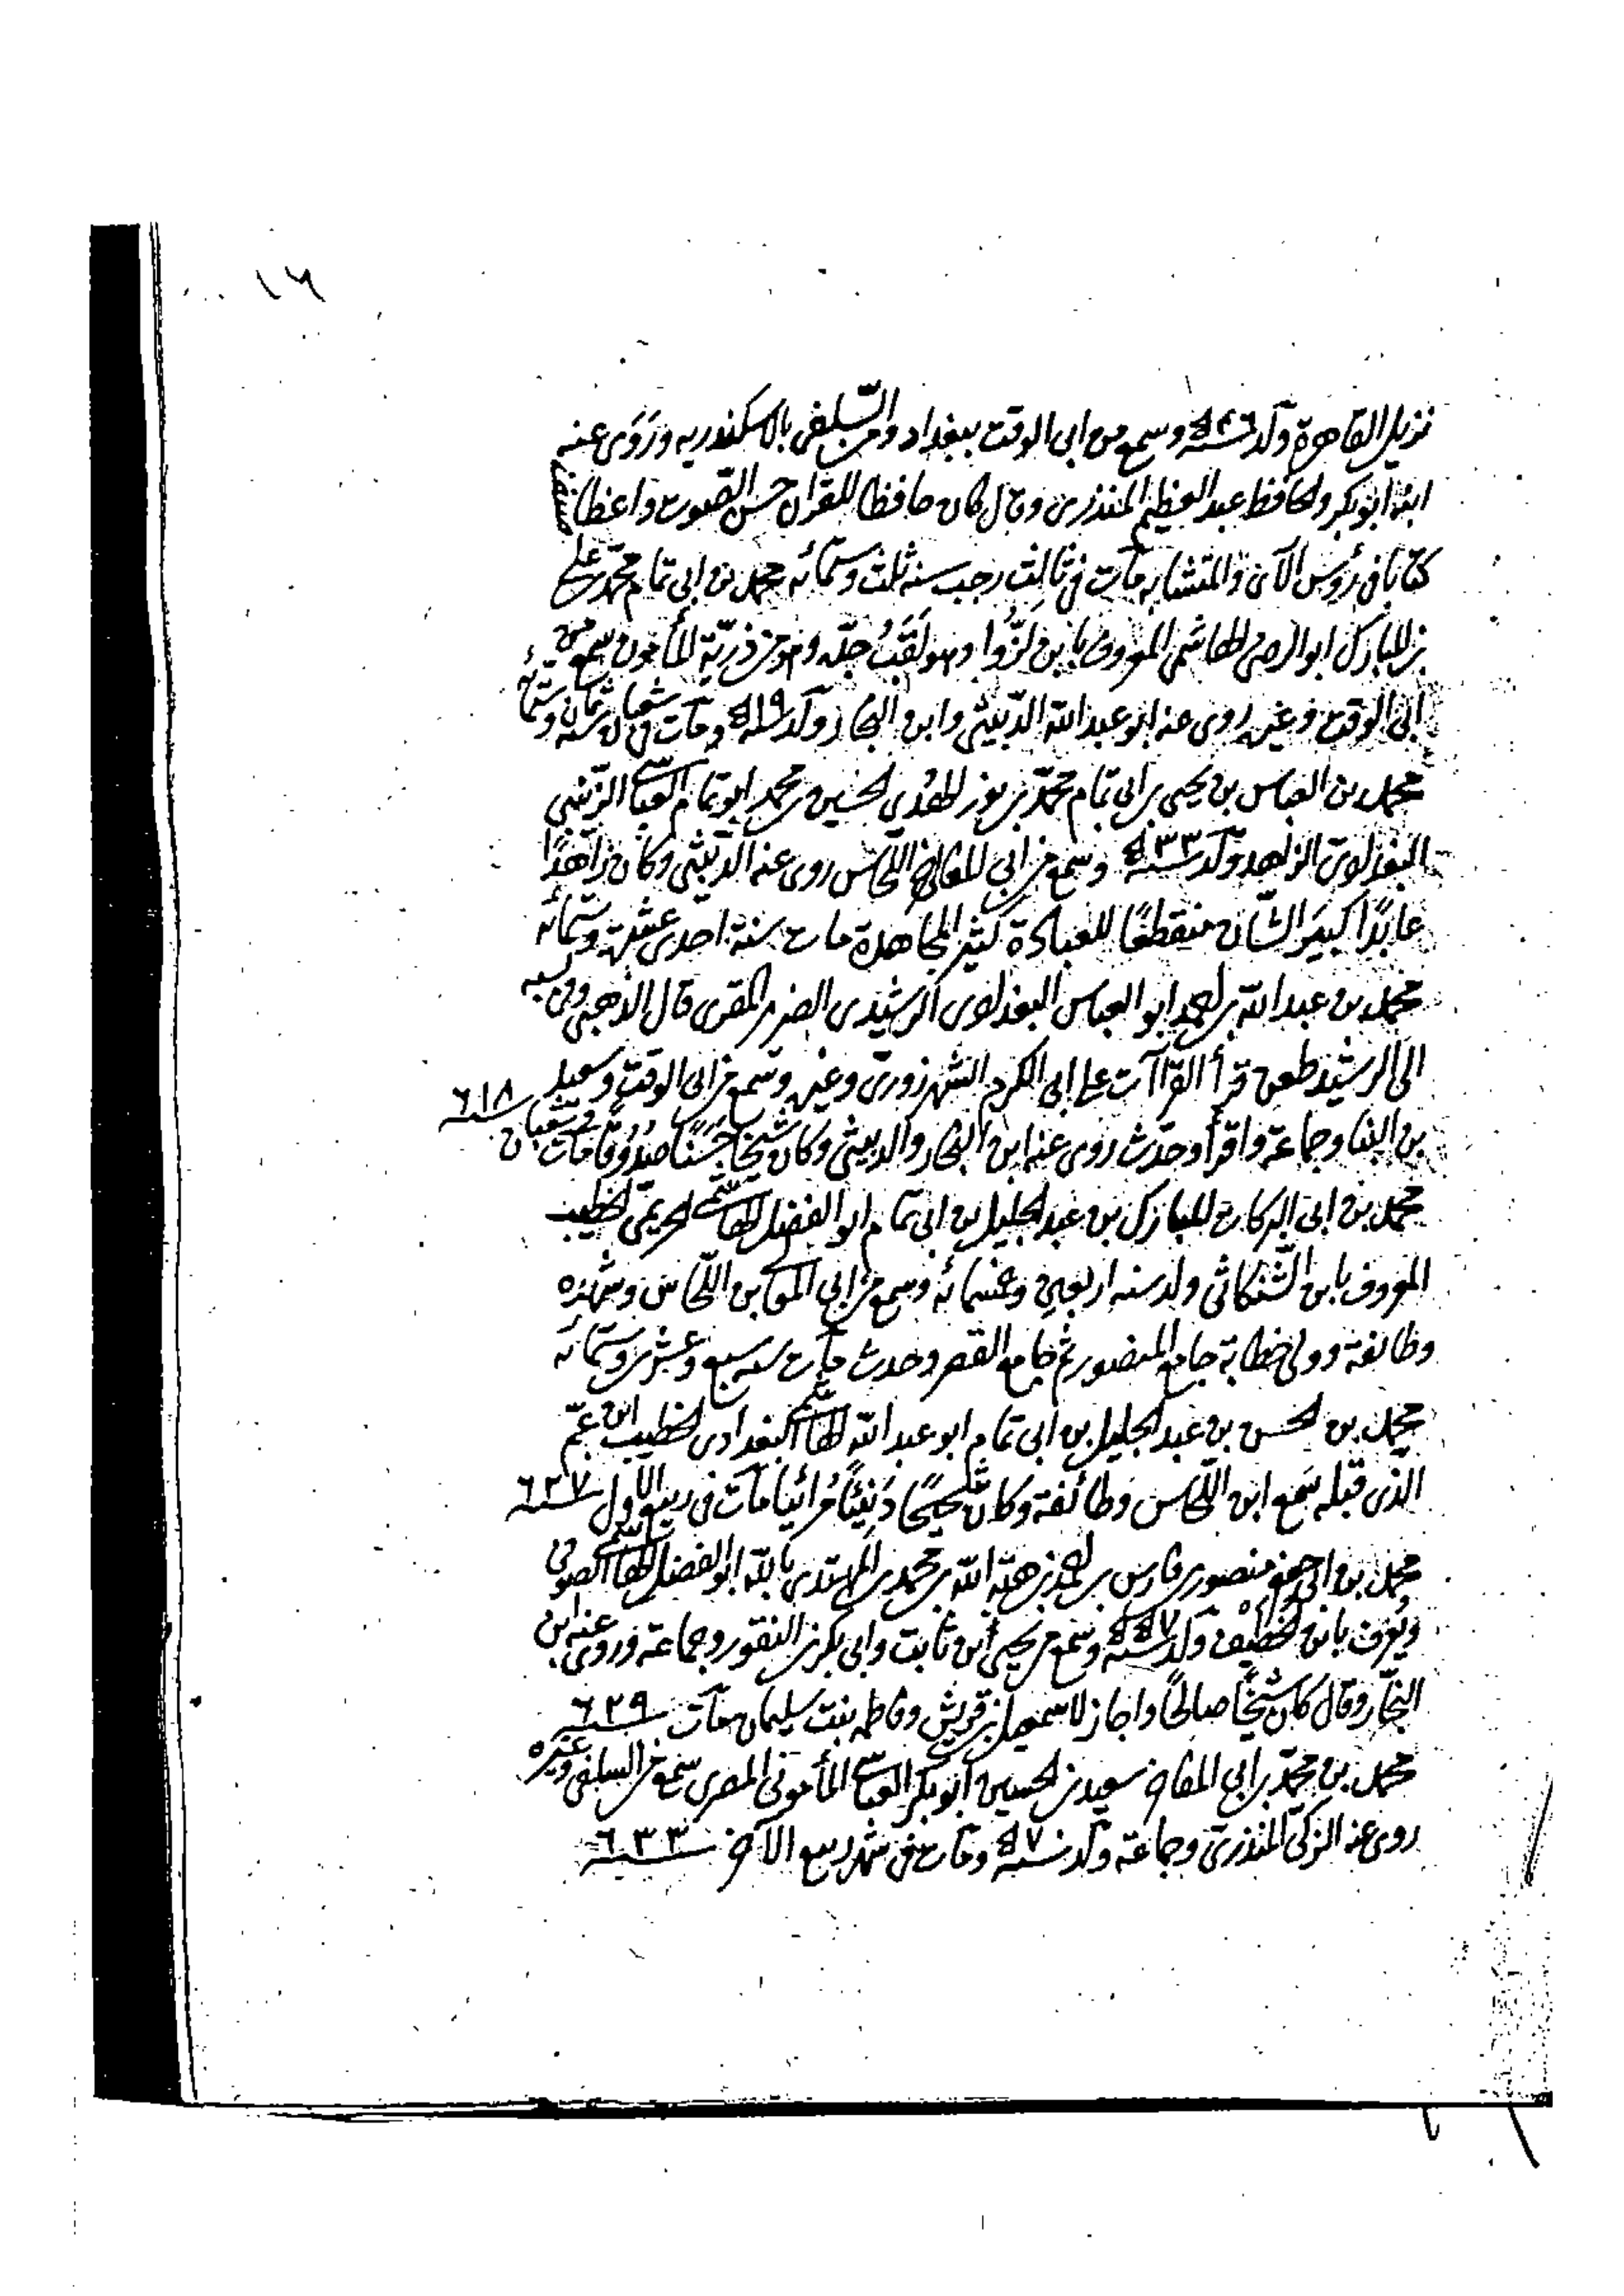 ١٦
نزيل القاهرة ولد سنة ٥٤٦ وسمع من ابى الوقت ببغداد ومن السلفى بالاسكندريه وروى عنه
ابنه ابو بكر والحافظ عبد العظيم المنذرى وقال كان حافظا للقرآن حسن الصوت واعظا
كتابا فى رؤس الآى والمتشابه مات فى ثالث رجب سنه ثلث وستمائه محمد بن ابى تمام محمد بن على
بن المبارك ابو الرضى الهاشمى المعروف بابن لزوا وهو لقب جده وهو من ذرية المأمون سمع من
ابى الوقت وغيره روى عنه ابو عبد الله الدبيثى وابن النجار ولد سنة ٥١٩ ومات فى شعبان سنة ثمان وستمائه
محمد بن العباس بن يحيى بن ابى تمام محمد بن نور الهدى الحسين بن محمد ابو تمام العباسى الزينبى
البغدادى الزاهد ولد سنة ٥٣٣ وسمع من ابى المعالى اللحاس روى عنه الدبيثى وكان زاهدًا
عابدًا كبير الشان منقطعًا للعبادة كثير المجاهدة مات سنة احدى عشرة وستمائه
محمد بن عبد الله بن احمد ابو العباس البغدادى الرشيدى الضرير المقرى قال الذهبى وفى نسبه
الى الرشيد طعن قرأ القراآت على ابى الكرم الشهرزورى وغيره وسمع من ابى الوقت وسعيد
بن البنا وجماعة واقرأ وحدث روى عنه ابن النجار والدبيثى وكان شيخا حسنًا صدوقًا مات فى شعبان سنة ٦١٨
محمد بن ابى البركات المبارك بن عبد الجليل بن ابى تمام ابو الفضل الهاشمى الحريمى الخطيب
المعروف بابن الشنكاتى ولد سنه اربعين وخمسمائه وسمع من ابى المعالى بن اللحاس وشهده
وطائفة وولى خطابة جامع المنصور ثم جامع القصر وحدث مات سنه سبع وعشرين وستمائه
محمد بن الحسن بن عبد الجليل بن ابى تمام ابو عبد الله الهاشمى البغدادى الخطيب ابن عم
الذى قبله سمع ابن اللحاس وطائفة وكان شحيحًا دنيئًا مرائيا مات فى ربيع الاول سنة ٦٢٧
محمد بن ابى جعفر منصور بن فارس بن احمد بن هبة الله بن محمد بن المهتدى بالله ابو الفضل الهاشمى الصوفى
ويعرف بابن الخطيف ولد سنة ٥٥٧ وسمع من يحيى ابن ثابت وابى بكر بن النقور وجماعة وروى عنه ابن
النجار وقال كان شيخًا صالحًا واجاز لاسمعيل بن قريش وفاطمه بنت سليمان مات سنة ٦٢٩
محمد بن محمد بن ابى المفاخر سعيد بن الحسين ابو بكر العباسى المأمونى المصرى سمع من السلفى وغيره
روى عنه الزكى المنذرى وجماعة ولد سنة ٥٧ ومات فى شهر ربيع الآخر سنة ٦٣٣